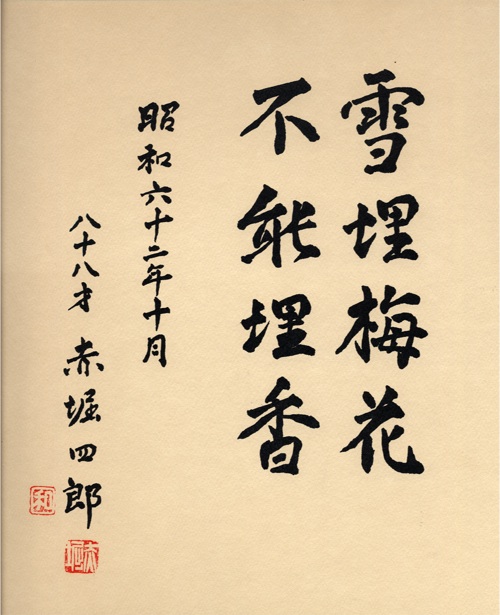 雪埋梅花
不能埋香
昭和六十二年十月
八十八才 赤堀四郎